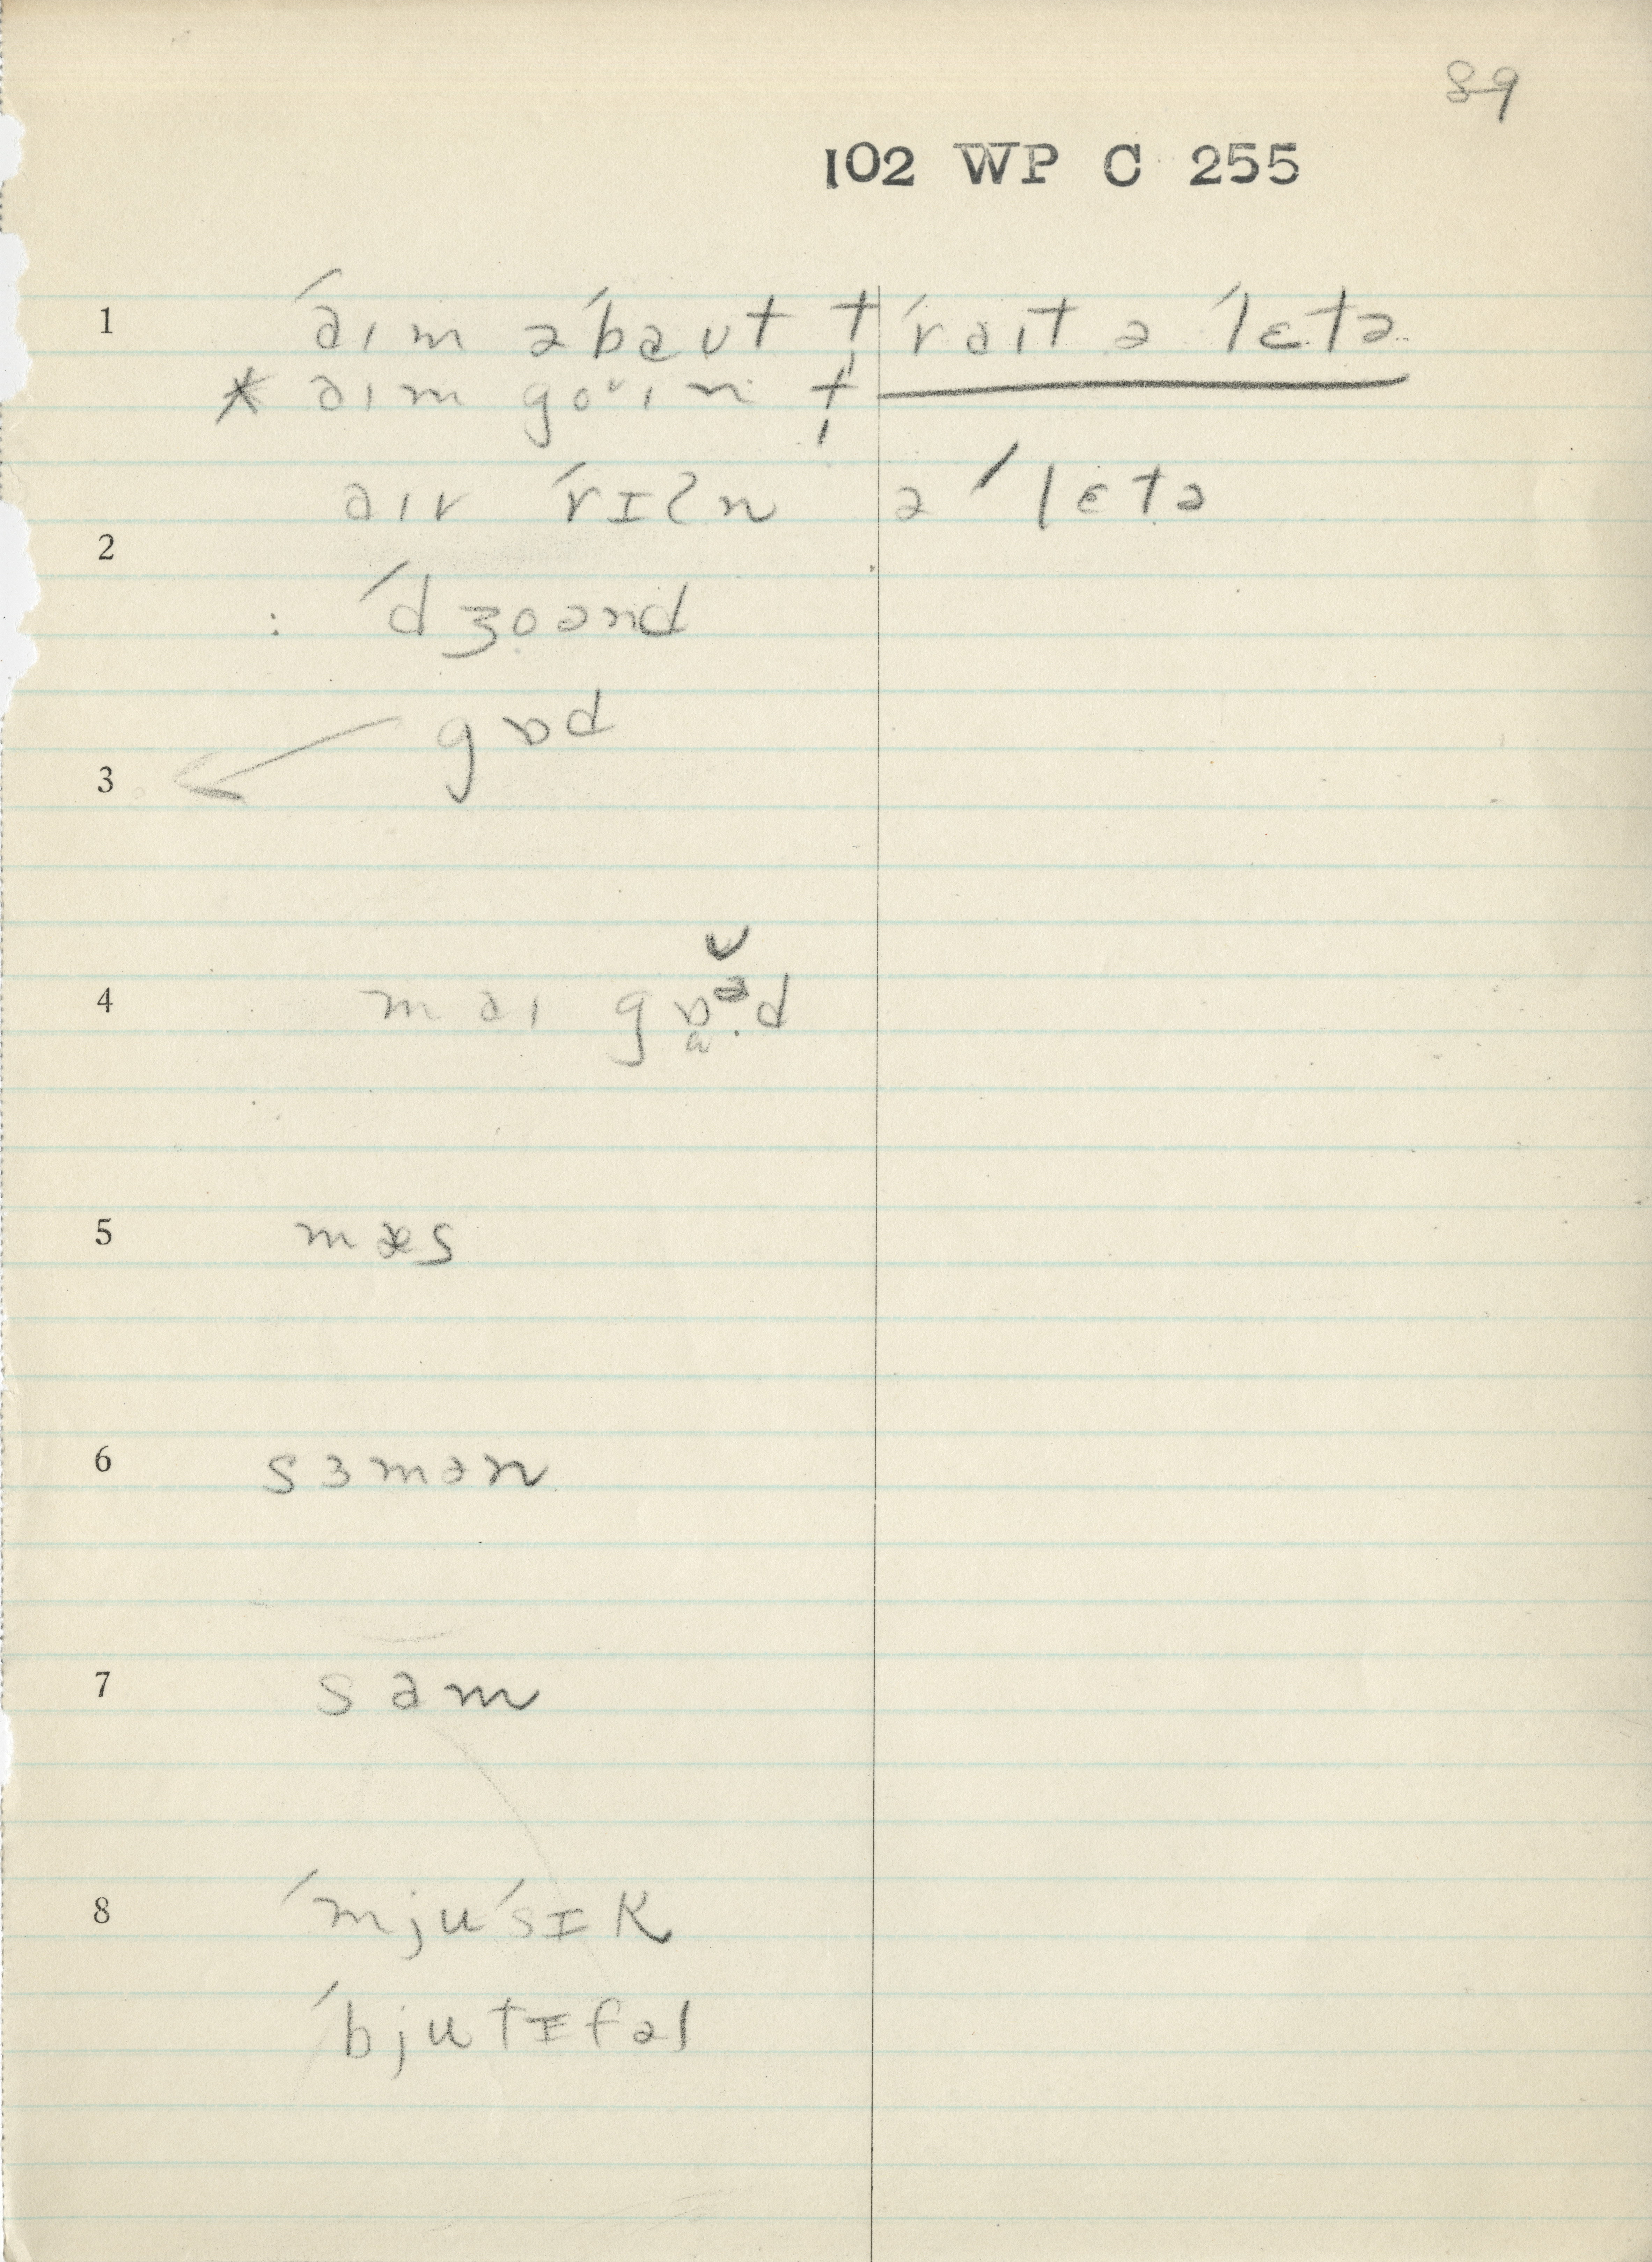 89
102 WP C 255
1 ˈaɪm əˈbaut t̩ ˈrait ə ˈlɛtə
* aɪm goᵘɪn t̩
aɪv ˈrɪʔn ə ˈlɛtə
2
: ˈdʒoənd
gɒd
3
4 mai gɒᵊd
5 mæs
6 sɜmən
7 sam
8 ˈmjuˈsɪk
ˈbjutɪfəl